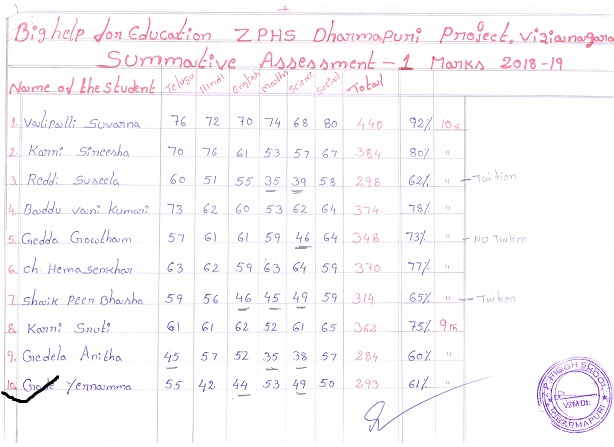 Bighelp for Education ZPHS Dharmapuri Project, Vizianagara
Summative Assessment - 1 Marks 2018-19
Name of the Student Telugu Hindi English Maths Social Total
1. Valipalli Suvarna 76 72 70 74 68 80 440 92% 10th
2. Karri Sireesha 70 76 61 53 57 67 384 80% "
3. Reddi Suseela 60 51 55 35 39 58 298 62% " - Tuition
4. Boddu vani Kumari 73 62 60 53 62 64 374 78% "
5. Gedda Gowtham 57 61 61 59 46 64 348 73% " - No Tuition
6. Ch. Hemasenkhar 63 62 59 63 64 59 370 77% "
7. Shaik Peer Bhasha 59 56 46 45 49 59 314 65% " - Tuition
8. Karri Sruti 61 61 62 52 61 65 362 75% 9th
9. Gredela Anitha 45 57 52 35 38 57 284 60% "
10. Yernamma 55 42 44 53 49 50 293 61% "
Z.P. HIGH SHOOL
VZM Dt.
DHARMAPURI